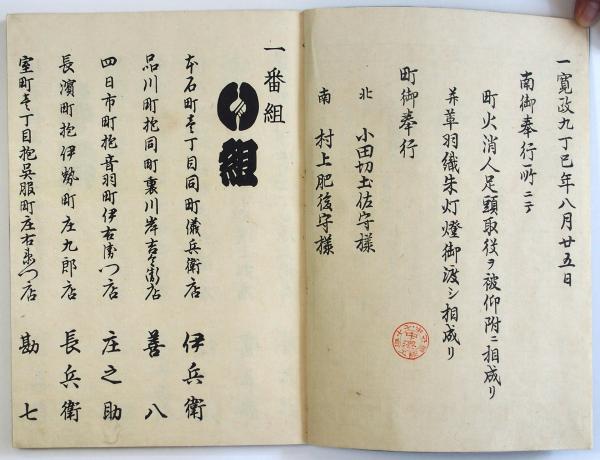 一寛政九丁巳年八月廿五日
南御奉行所ニテ
町火消人足頭取役ヲ被仰附ニ相成リ
并革羽織朱灯燈御渡シ相成リ
町御奉行
北 小田切土佐守様
南 村上肥後守様
一番組
い組
本石町壱丁目同町儀兵衛店 伊兵衛
品川町抱同町裏川岸吉兵衛店 善八
四日市町抱音羽町伊右衛門店 庄之助
長濱町抱伊勢町庄九郎店 長兵衛
室町壱丁目抱呉服町庄右衛門店 勘七